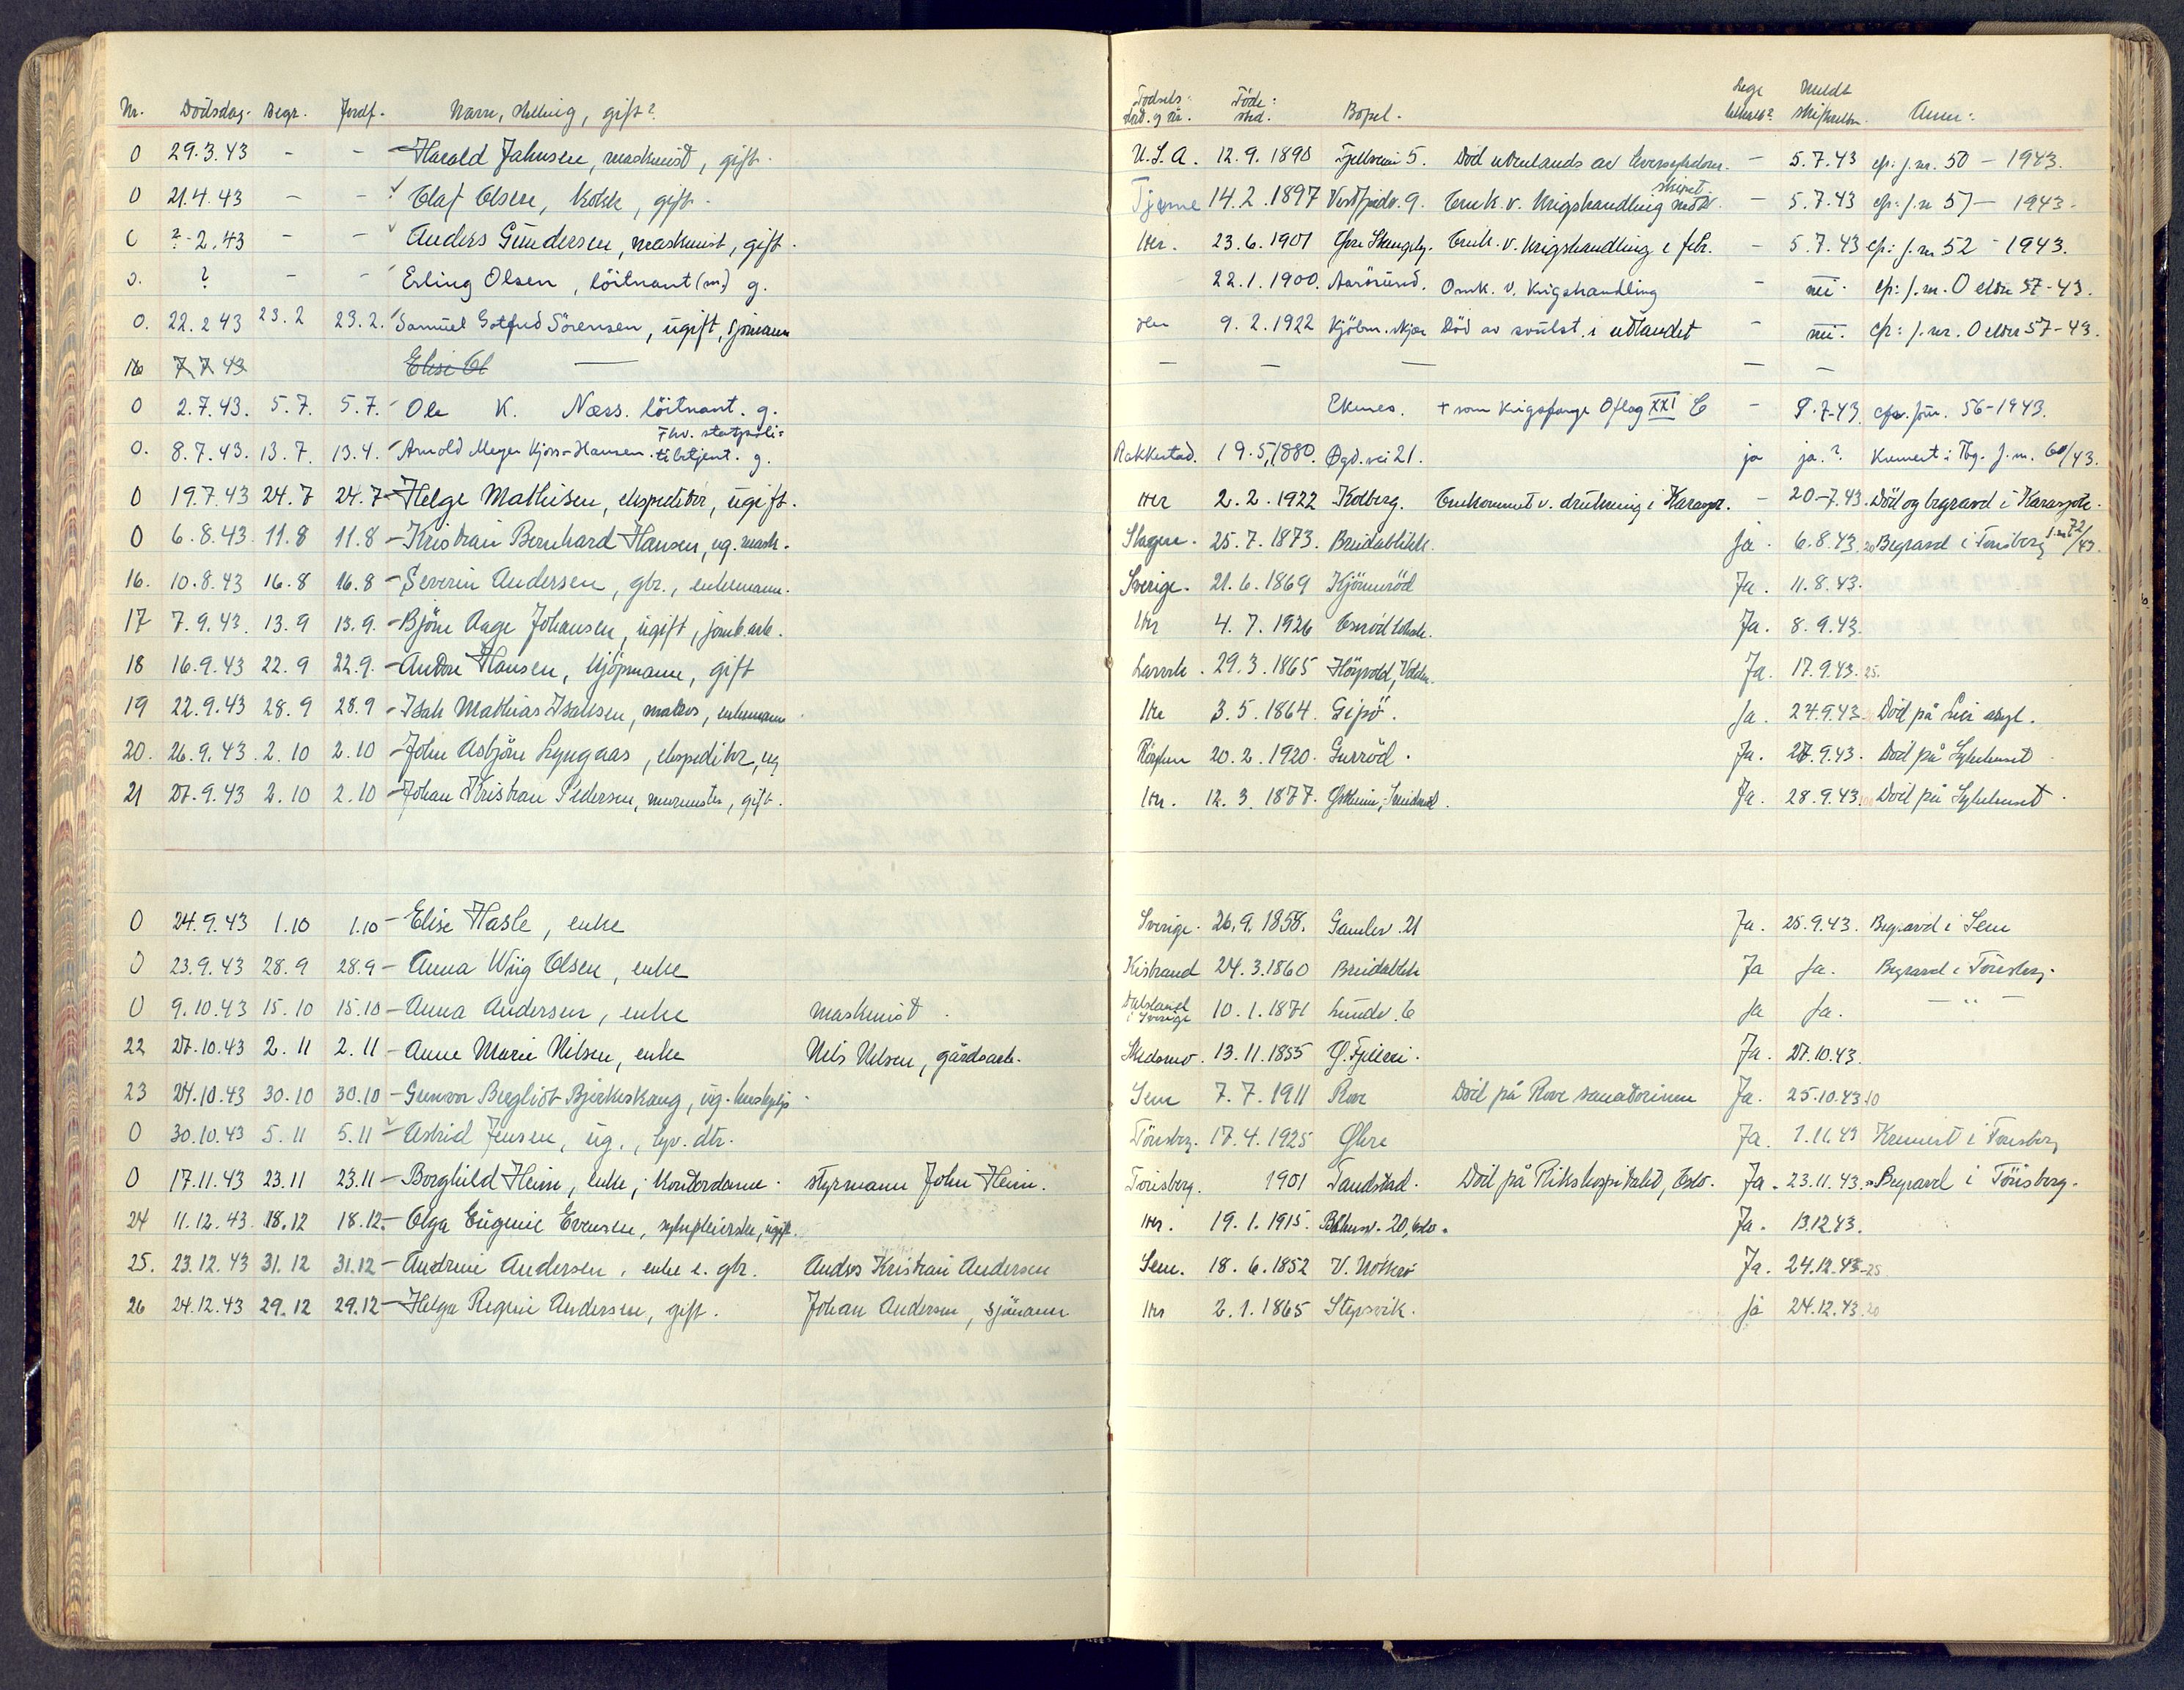 Nr. Dödsdag. Begr. Jordf. Navn, stilling, gift? Födsels: sted. Föde: Bopel. Lege Meldt Anm:
0 29.3.43 - - Harald Jahnsen, maskinist, gift. U.S.A. 12.9.1890 5. Död utenlands av - 5.7.43 cfr: j.nr. 50 - 1943.
0 21.4.43 - - Olaf Olsen, kokk, gift. Tjøme 14.2.1897 9. Omk. v. krigshandling mot skipet. - 5.7.43 cfr: j.nr 51 - 1943.
0 ? - 2.43 - - Anders Gundersen, maskinist, gift. Her. 23.6.1901 Omk. v. krigshandling i febr. - 5.7.43 cfr: j.nr 52 - 1943.
0. ? - - Erling Olsen, löitnant (m.) g. 22.1.1900. Aarösund. Omk. v. krigshandling - nei. cfr: j.nr. 0 eldre 57-43.
0. 22.2.43 23.2 23.2. Samuel Gotfred Sörensen, ugift, sjömann 9.2.1922 Död av svulst i utlandet - nei. cfr: j.nr. 0 eldre 57-43.
16 7.7.43 Elise Ol — — — — — —
0 2.7.43. 5.7. 5.7. Ole K. Næss. löitnant. g. Ekenes. + som krigsfange Oflag XXI C - 9.7.43. cfr. jour. 56-1943.
0. 8.7.43. 13.7. 13.4. Arnold Meyer Kjoss-Hansen. Fhv. statspoli= tibetjent. g. Rakkestad. 19.5.1880. Øgd.vei 21. ja ja.? Kremert i Tbg. j.nr. 60/43.
0 19.7.43 24.7 24.7 - Helge Mathisen, ekspeditör, ugift. Her 2.2.1922 Kolberg. Omkommet v. drukning i Karasjok. - 20-7.43. Död og begravd i Karasjok.
0 6.8.43. 11.8 11.8 - Kristian Bernhard Hansen, ug. mask. Slagen. 25.7.1873. Breidablikk. ja. 6.8.43. 20 Begravd i Tönsberg j.nr 72/43.
16. 10.8.43 16.8 16.8 - Severin Andersen, gbr., enkemann. Sverige. 21.6.1869 Kjönneröd Ja. 11.8.43.
17 7.9.43. 13.9 13.9. - Björn Aage Johansen, ugift, jernb.arb. Her 4.7.1926 Ja. 8.9.43.
18 16.9.43 22.9 22.9. - Andor Hansen, kjöpmann, gift Larvik. 29.3.1865 Ja. 17.9.43. 25.
19 22.9.43 28.9 28.9 - Isak Mathias Isaksen, matros, enkemann Her 3.5.1864. Gipö. Ja. 24.9.43. Död på Lei asyl.
20. 26.9.43. 2.10 2.10 - John Asbjörn Lyngaas, ekspeditör, ug 20.2.1920. Gurröd. Ja. 27.9.43. Död på Sykehuset
21 27.9.43 2.10 2.10 - Johan Kristian Pedersen, murmester, gift. Her. 12.3.1877. Ja. 28.9.43. Död på Sykehuset.
0 24.9.43 1.10 1.10 - Elise Hasle, enke Sverige. 26.9.1858. Gamlev. 21 Ja. 25.9.43. Begravd i Sem
0 23.9.43 28.9 28.9 - Anna Wiig Olsen, enke Kistrand 24.3.1860 Breidablik Ja Ja. Begravd i Tönsberg.
0 9.10.43 15.10 15.10 - Anna Andersen, enke maskinist. Dalsland i Sverige 10.1.1871 Lundv. 6 Ja Ja. — " —
22 27.10.43 2.11 2.11 - Anne Marie Nilsen, enke Nils Nilsen, gårdsarb. Skedsmo. 13.11.1855 Ja. 27.10.43.
23 24.10.43 30.10 30.10 - Gunvor Bergliot Bjerkeskaug, ug. hushjelp. Sem 7.7.1911 Rove Död på Rove sanatorium Ja. 25.10.43 10
0 30.10.43 5.11 5.11 Astrid Jensen, ug., typ. dtr. Tönsberg. 17.4.1925 Øhre Ja. 1.11.43 Kremert i Tönsberg
0 17.11.43 23.11 23.11 - Borghild Heim, enke, kontordame. styrmann John Heim. Tönsberg. 1901 Tandstad. Död på Rikshospitalet, Oslo. Ja. 23.11.43. Begravd i Tönsberg.
24 11.12.43. 18.12 18.12. - Olga Eugenie Evensen, sykepleierske, ugift. Her. 19.1.1915. 20, Oslo. Ja. 13.12.43.
25. 23.12.43 31.12 31.12 - Andrine Andersen, enke e. gbr. Anders Kristian Andersen Sem. 18.6.1852 V. Nötterö Ja. 24.12.43 - 25
26 24.12.43 29.12 29.12 - Helga Regine Andersen, gift. Johan Andersen, sjömann Her 2.1.1865 Stepsvik. ja 24.12.43. 20